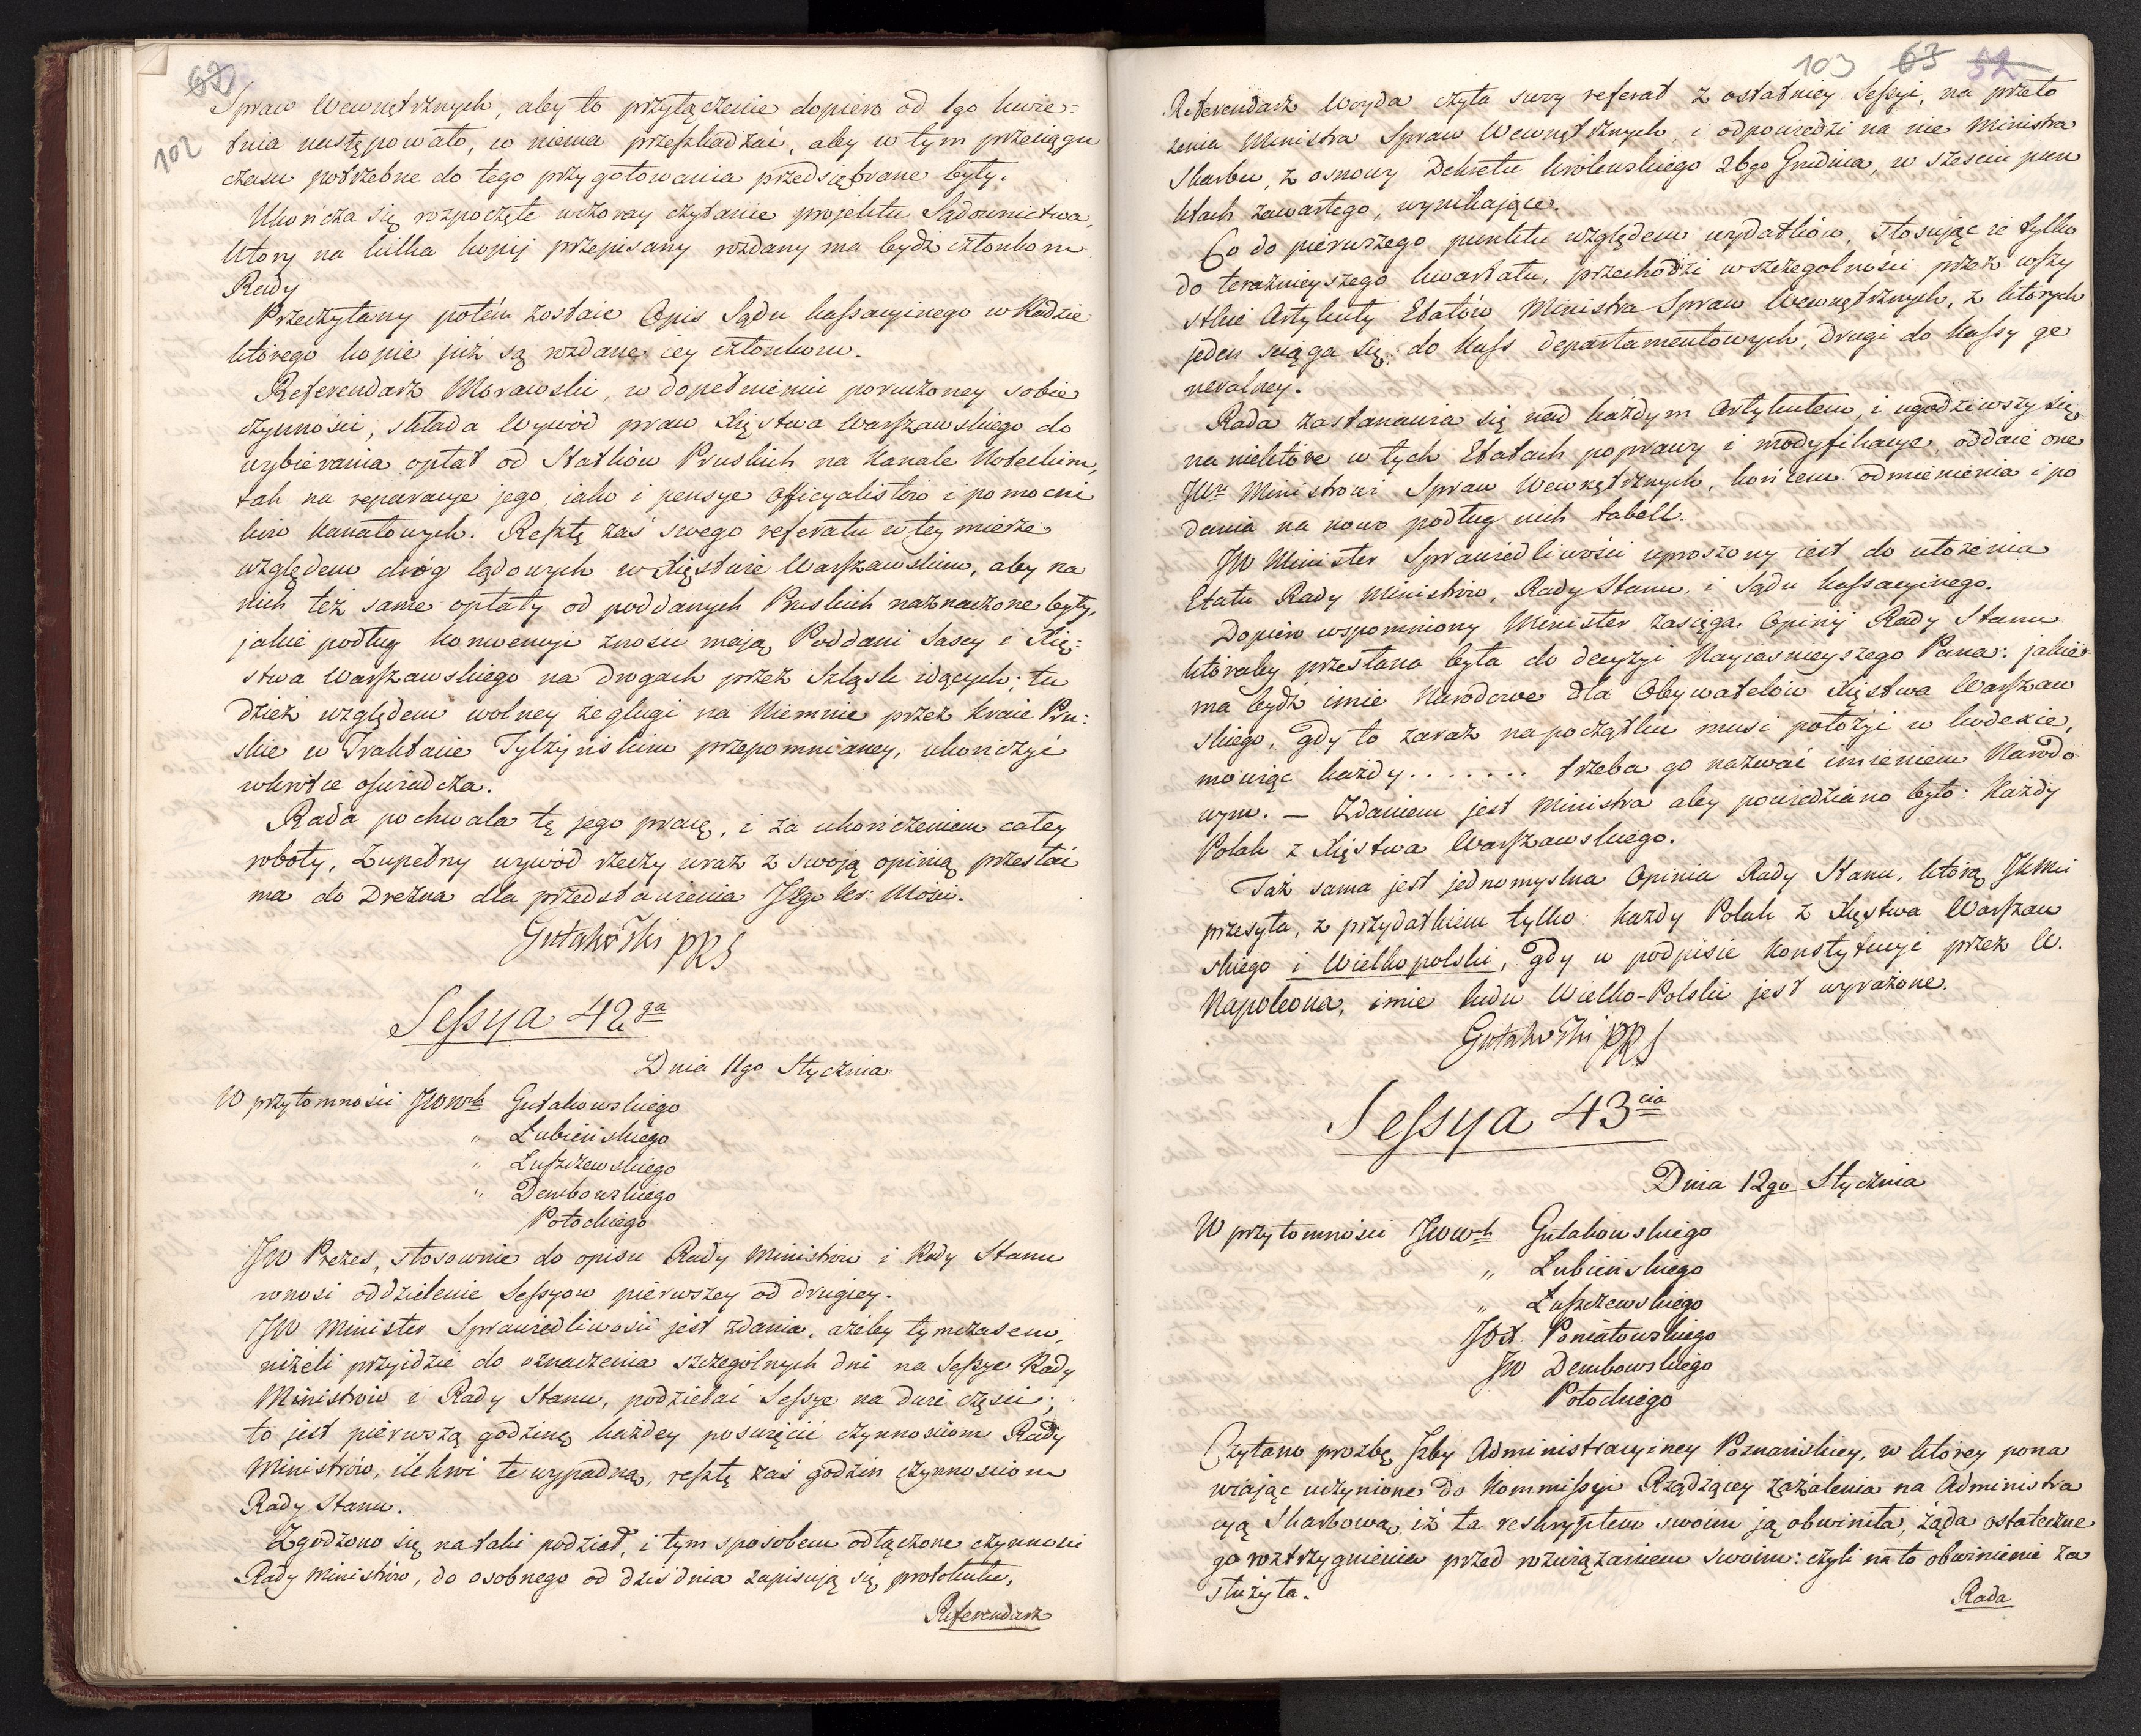 63
102
Spraw Wewnętrznych, aby to przyłączenie dopiero od 1go kwie=
tnia następowało, co niema przeszkadzać, aby w tym przeciągu
czasu potrzebne do tego przygotowania przedsiębrane były.
Ukończa się rozpoczęte wczoray czytanie projektu Sądownictwa,
który na kilka kopij przepisany rozdany ma bydź członkom
Rady
Przeczytany potém zostaie Opis Sądu kassacyinego w Radzie
którego kopie już są rozdane iey członkom.
Referendarz Morawski, w dopełnieniu poruczoney sobie
czynności, składa Wywód praw Xięstwa Warszawskiego do
wybierania opłat od Statków Pruskich na Kanale Noteckim,
tak na reparacye jego, iako i pensye Officyalistów i pomocni
ków kanałowych. Resztę zaś swego referatu w tey mierze
względem dróg lądowych w Xięstwie Warszawskim, aby na
nich też same opłaty od poddanych Pruskich naznaczone były,
jakie podług konwencyi znosić mają Poddani Sascy i Xię=
stwa Warszawskiego na drogach przez Szląsk idących; tu
dzież względem wolney żeglugi na Niemnie przez kraie Pru=
skie w Traktacie Tylżyńskim przepomnianey, ukończyć
wkrótce oświadcza.
Rada pochwala tę jego pracę, i za ukończeniem całey
roboty, Zupełny wywód rzeczy wraz z swoją opinią przesłać
ma do Drezna dla przedstawienia JEgo kr: Mości.
Gutakowski PRS
Sessya 42ga
Dnia 11go Stycznia
W przytomności JWWch Gutakowskiego
" Łubieńskiego
" Łuszczewskiego
" Dembowskiego
Potockiego
JW Prezes, stosownie do opisu Rady Ministrów i Rady Stanu
wnosi oddzielenie Sessyow pierwszey od drugiey.
JW Minister Sprawiedliwości jest zdania, ażeby tymczasem,
niżeli przyidzie do oznaczenia szczególnych dni na Sessye Rady
Ministrów i Rady Stanu, podzielać Sessye na dwie części;
to jest pierwszą godzinę każdey poswięcić czynnościom Rady
Ministrów, ilekroć te wypadną, resztę zaś godzin czynnościom
Rady Stanu.
Zgodzono się na taki podział, i tym sposobem odłączone czynności
Rady Ministrów, do osobnego od dziś dnia zapisują się protokułu.
Referendarz
103 63 52
Referendarz Woyda czyta swoy referat z ostatniey Sessyi, na przeło
żenia Ministra Spraw Wewnętrznych i odpowiedzi na nie Ministra
Skarbu, z osnowy Dekretu królewskiego 26go Grudnia, w sześciu pun
ktach zawartego, wynikające.
Co do pierwszego punktu względem wydatków, stosując ie tylko
do teraźnieyszego kwartału, przechodzi w szczegolności przez wszy
stkie Artykuły Etatów Ministra Spraw Wewnętrznych, z których
jeden sciąga się do kass departamentowych, drugi do kassy ge
neralney.
Rada zastanawia się nad każdym Artykułem, i ugodziwszy się
na niektóre w tych Etatach poprawy i modyfikacye, oddaie one
JWu Ministrowi Spraw Wewnętrznych, końcem odmienienia i po
dania na nowo podług nich tabell.
JW Minister Sprawiedliwości uproszony iest do ułożenia
Etatu Rady Ministrów, Rady Stanu, i Sądu kassacyinego.
Dopiero wspomniony Minister zasięga Opinij Rady Stanu
któraby przesłana była do decyzyi Nayiasnieyszego Pana: jakie
ma bydź imie Narodowe dla Obywatelów Xięstwa Warszaw
skiego, gdy to zaraz na początku musi położyć w kodexie,
mówiąc każdy . . . . . . . trzeba go nazwać imieniem Narodo
wym. — Zdaniem jest Ministra aby powiedziano było: Każdy
Polak z Xięstwa Warszawskiego.
Taż sama jest jednomyslna Opinia Rady Stanu, którą JKMci
przesyła, z przydatkiem tylko: każdy Polak z Xięstwa Warszaw
skiego i Wielkopolski, gdy w podpisie Konstytucyi przez W.
Napoleona, imie ludu Wielko-Polski jest wyrażone.
Gutakowski PRS
Sessya 43cia
Dnia 12go Stycznia
W przytomności JWWch Gutakowskiego
" Łubieńskiego
" Łuszczewskiego
JOX. Poniatowskiego
JW Dembowskiego
Potockiego
Czytano prozbę Izby Administracyiney Poznańskiey, w którey pona
wiając uczynione do Kommissyi Rządzącey zażalenia na Administra
cyą Skarbową, iż ta reskryptem swoim ją obwiniła, żąda ostateczne
go roztrzygnienia przed rozwiązaniem swoim: czyli na to obwinienie za
służyła.
Rada